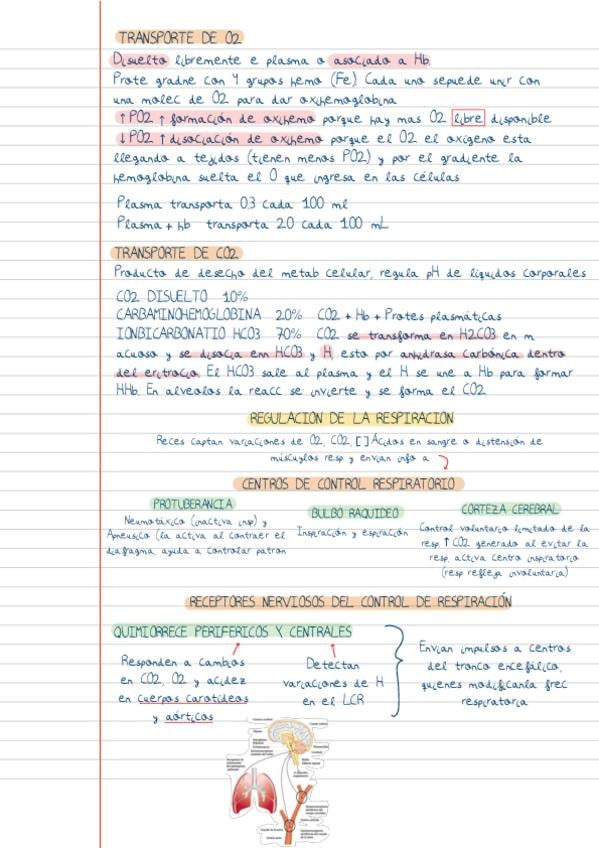 TRANSPORTE DE O2
Disuelto libremente e plasma o asociado a Hb.
Prote gradne con 4 grupos hemo (Fe). Cada uno sepuede unir con
una molec de O2 para dar oxihemoglobina
↑PO2 ↑ formación de oxihemo porque hay mas O2 libre disponible
↓PO2 ↑ disociación de oxihemo porque el O2 el oxigeno esta
llegando a tejidos (tienen menos PO2) y por el gradiente la
hemoglobina suelta el O que ingresa en las células
Plasma transporta 0.3 cada 100 ml
Plasma + hb transporta 20 cada 100 mL
TRANSPORTE DE CO2
Producto de desecho del metab celular, regula pH de liquidos corporales
CO2 DISUELTO 10%
CARBAMINOHEMOGLOBINA 20% CO2 + Hb + Protes plasmáticas
IONBICARBONATIO HCO3 70% CO2 se transforma en H2CO3 en m
acuoso y se disocia enn HCO3 y H, esto por anhidrasa carbónica dentro
del eritrocio. El HCO3 sale al plasma y el H se une a Hb para formar
HHb. En alveolos la reacc se invierte y se forma el CO2
REGULACION DE LA RESPIRACION
Reces captan variaciones de O2, CO2, [ ] Ácidos en sangre o distensión de
múscuylos resp y envian info a
CENTROS DE CONTROL RESPIRATORIO
PROTUBERANCIA
Neumotáxico (inactiva insp) y
Apneusico (la activa al contraer el
diafragma, ayuda a controlar patron
BULBO RAQUIDEO
Inspiración y espiración
CORTEZA CEREBRAL
Control voluntario limitado de la
resp. ↑ CO2 generado al evitar la
resp, activa centro inspiratorio
(resp refleja involuntaria)
RECEPTORES NERVIOSOS DEL CONTROL DE RESPIRACIÓN
QUIMIORRECE PERIFERICOS Y CENTRALES
Responden a cambios
en CO2, O2 y acidez
en cuerpos carotideos
y aórticos
Detectan
variaciones de H
en el LCR
Envian impulsos a centros
del tronco encefálico,
quienes modificanla frec
respiratoria